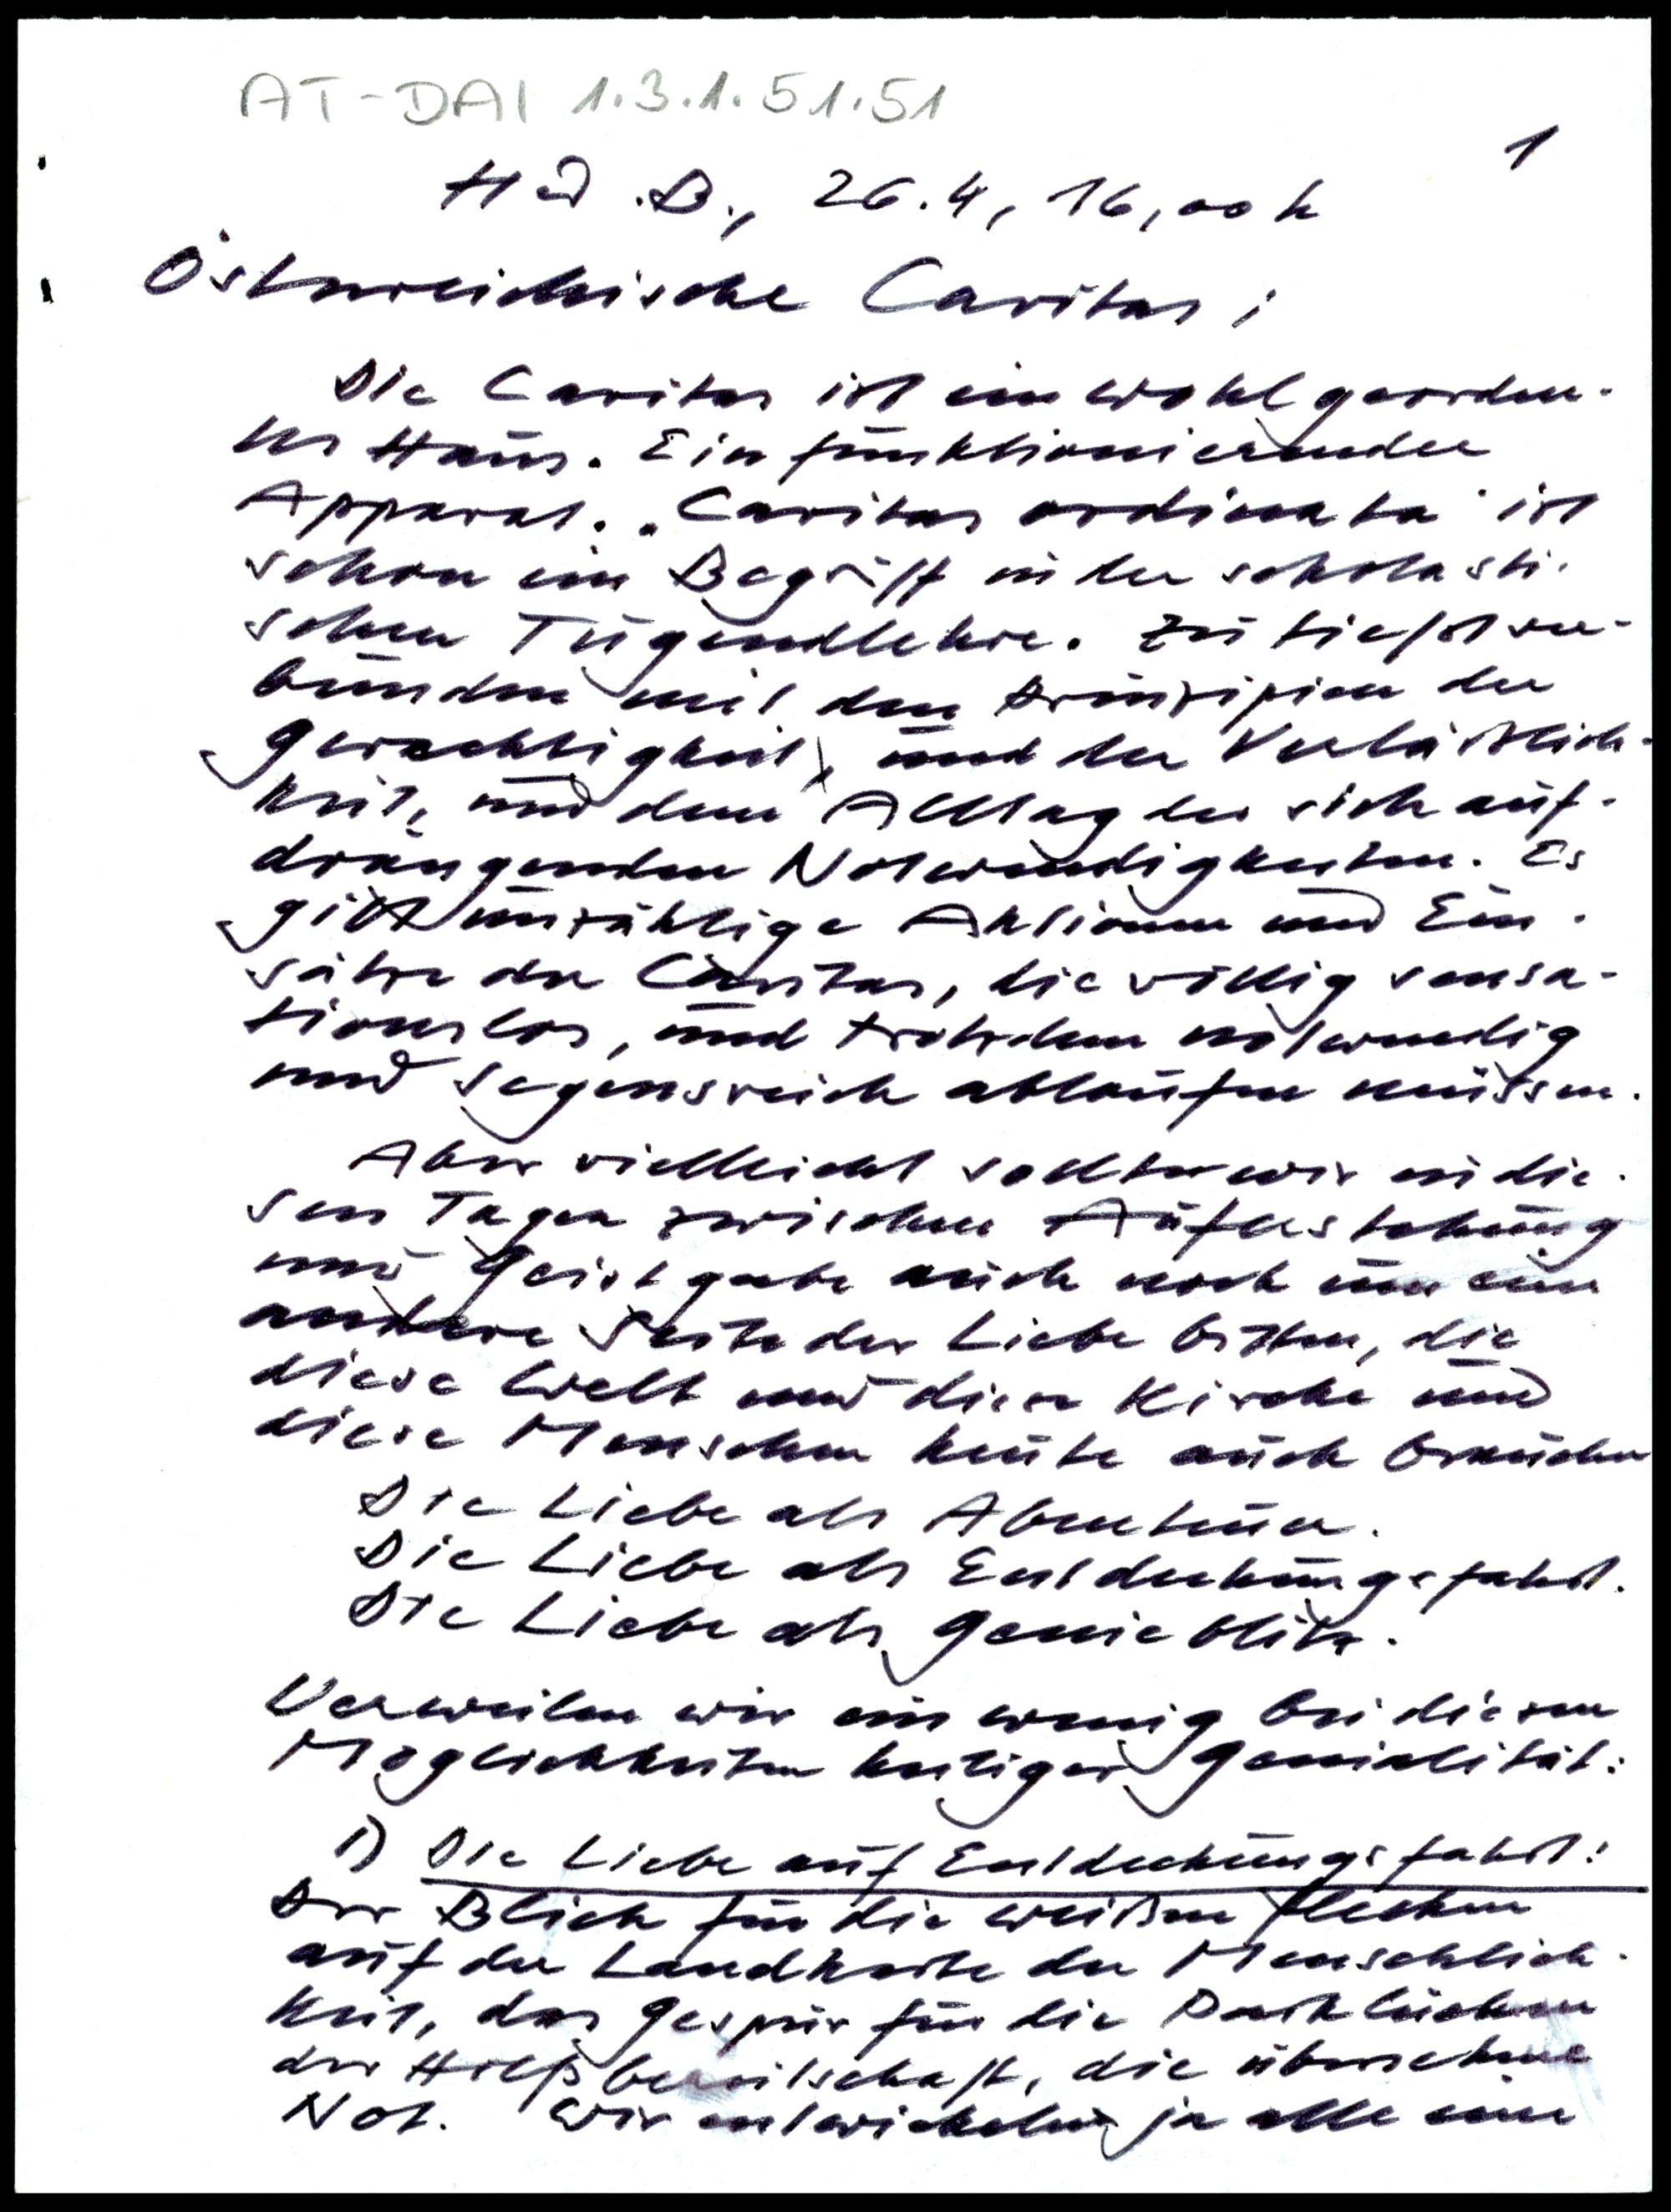 AT-DAI 1.3.1.51.51
1
H d. B., 26.4, 16,00 h
Österreichische Caritas:
Die Caritas ist ein wohl geordne-
tes Haus. Ein funktionierender
Apparat. "Caritas ordinata" ist
schon ein Begriff in der scholasti-
schen Tugendlehre. Zu tiefst ver-
bunden mit den Prinzipien der
Gerechtigkeit, und der Verläßlich-
keit, und dem Alltag der sich auf-
drängenden Notwendigkeiten. Es
gibt unzählige Aktionen und Ein-
sätze der Caritas, die völlig sensa-
tionslos, und trotzdem notwendig
und segensreich ablaufen müssen.
Aber vielleicht sollten wir in die-
sen Tagen zwischen Auferstehung
und Geistgabe auch noch um eine
andere Seite der Liebe bitten, die
diese Welt und diese Kirche und
diese Menschen heute auch brauchen
Die Liebe als Abenteuer.
Die Liebe als Entdeckungsfahrt.
Die Liebe als Genieblitz.
Verweilen wir ein wenig bei diesen
Möglichkeiten heiliger Genialität:
1) Die Liebe auf Entdeckungsfahrt:
Der Blick für die weißen Flecken
auf der Landkarte der Menschlich-
keit, das Gespür für die Parklücken
der Hilfsbereitschaft, die übersehene
Not. Wir entwickeln ja alle eine